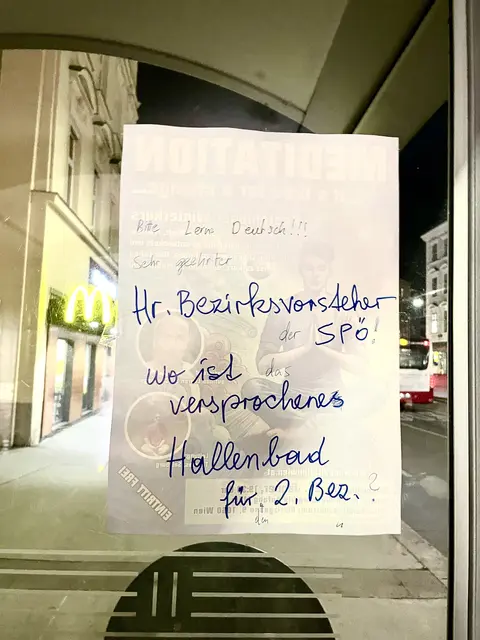 MEDITATION
Bitte Lerne Deutsch!!!
Sehr geehrter
Hr. Bezirksvorsteher
der SPÖ!
wo ist das
versprochenes
Hallenbad
für 2. Bez.?
den
EINTRITT FREI